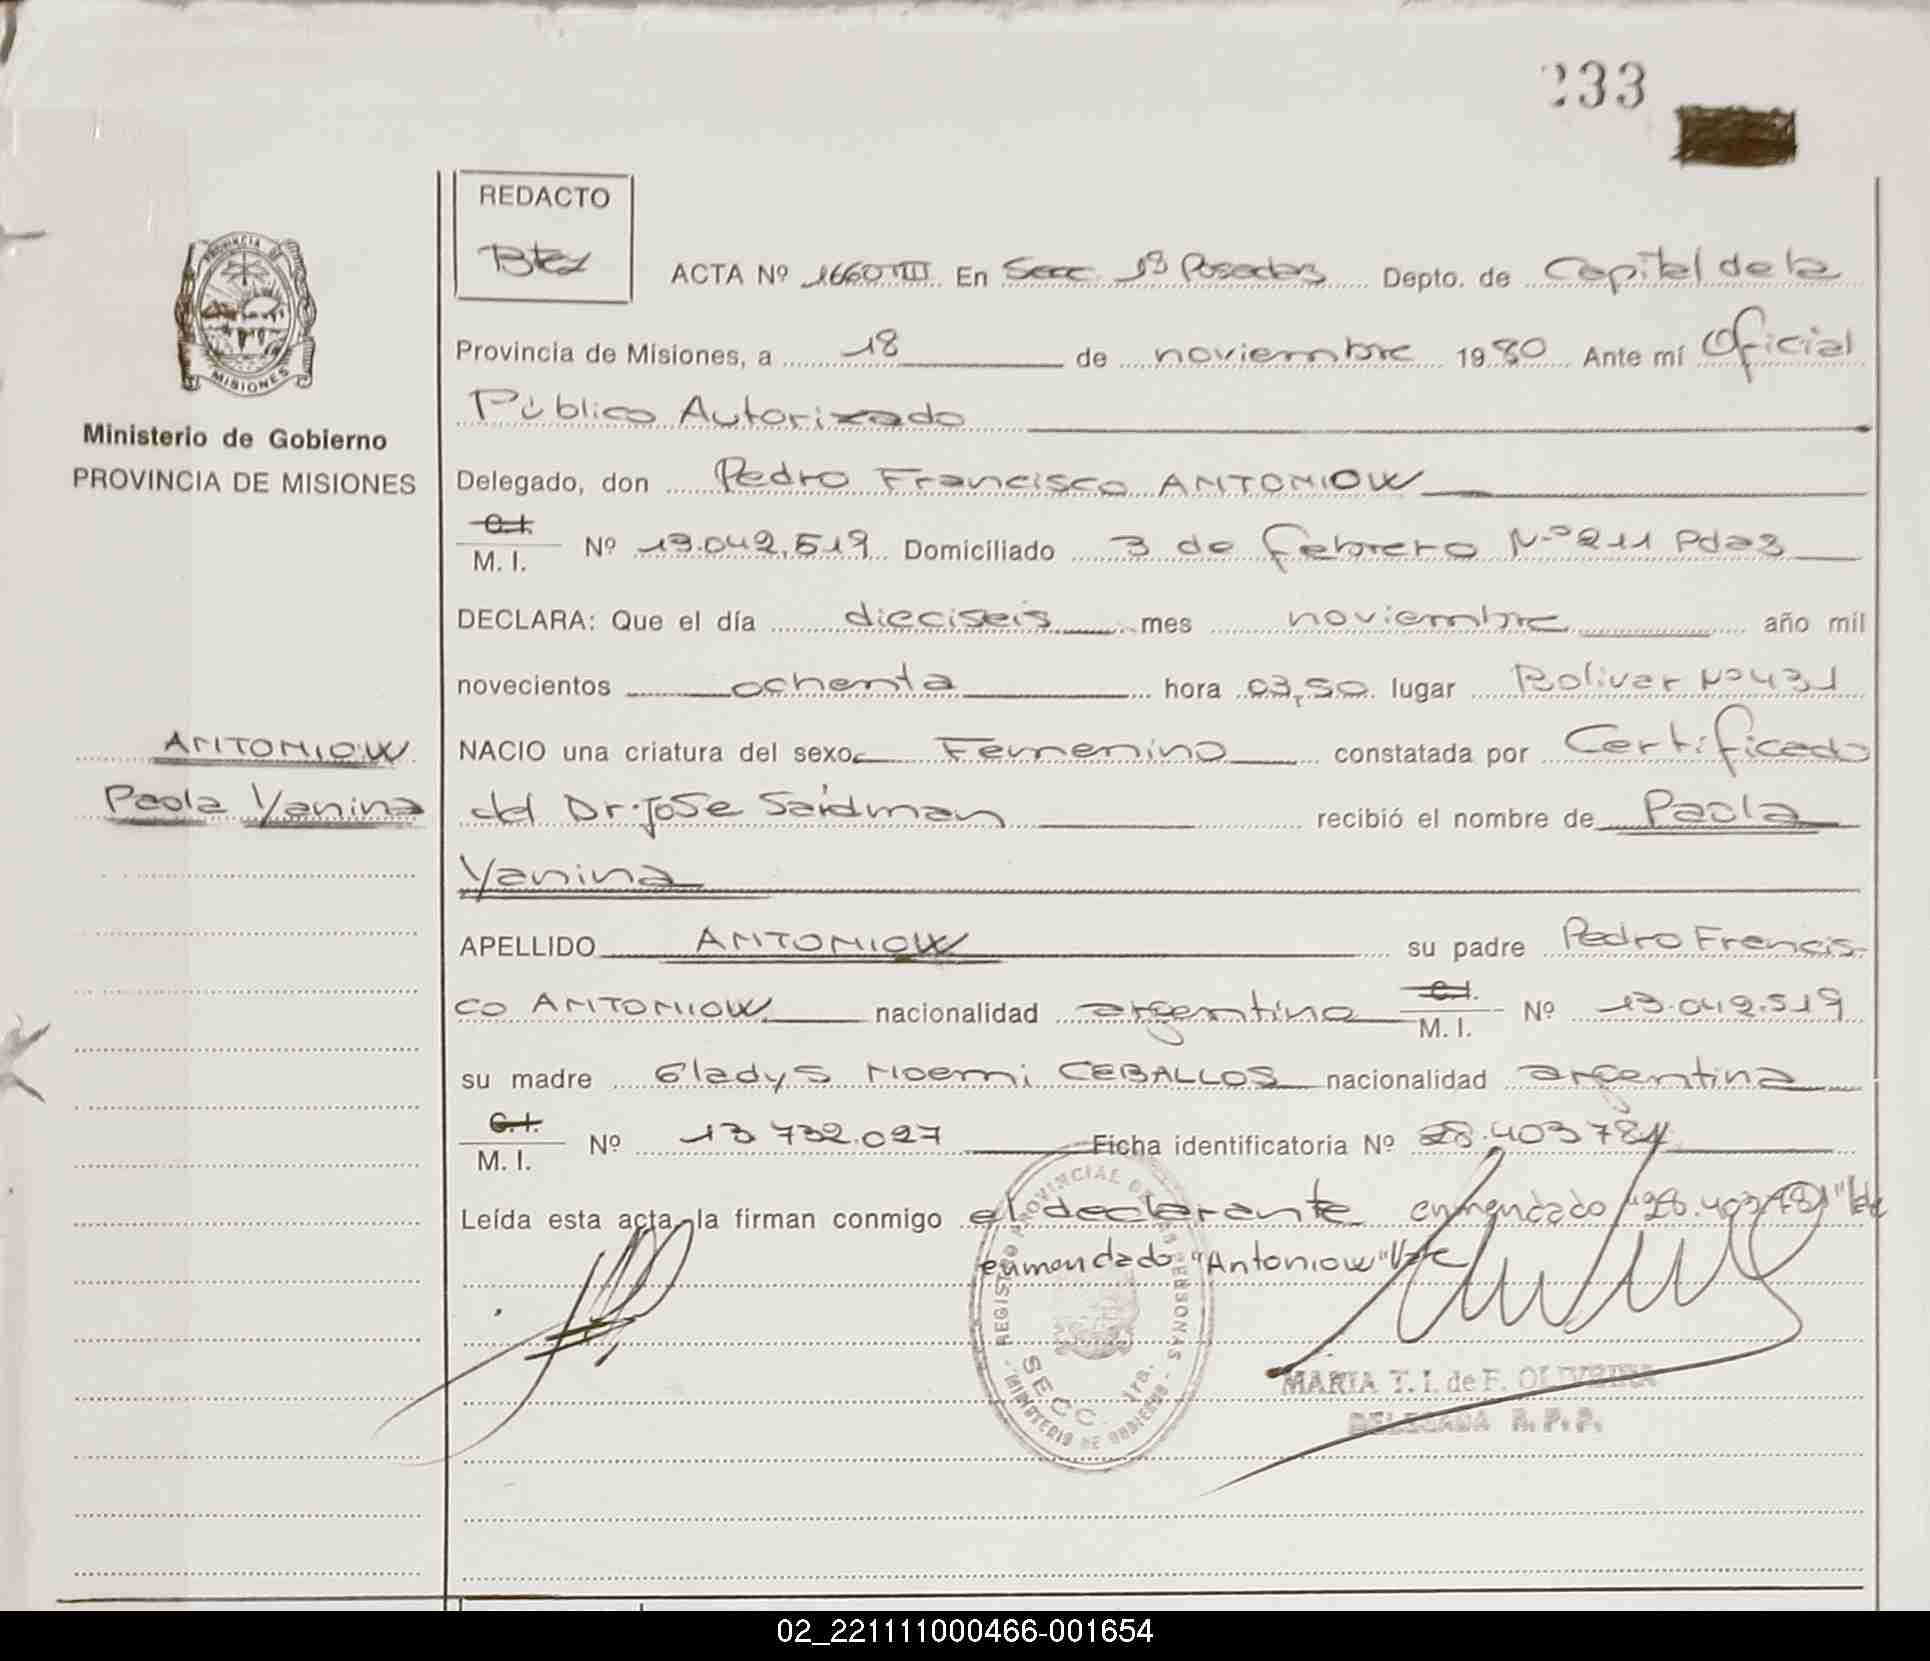 233
REDACTO
ACTA Nº 1660 III En Secc. 1ª Posadas Depto. de Capital de la
Provincia de Misiones, a 18 de noviembre 1980 Ante mí Oficial
Público Autorizado
PROVINCIA DE MISIONES
Ministerio de Gobierno
PROVINCIA DE MISIONES
Delegado, don Pedro Francisco ANTONIOW
C.I. M. I. Nº 13.042.519 Domiciliado 3 de febrero Nº 211 Pdas
DECLARA: Que el día dieciseis mes noviembre año mil
novecientos ochenta hora 03,50 lugar Bolivar Nº 431
ANTONIOW
Paola Yanina
NACIO una criatura del sexo Femenino constatada por Certificado
del Dr. Jose Saidman recibió el nombre de Paola
Yanina
APELLIDO ANTONIOW su padre Pedro Francis-
co ANTONIOW nacionalidad argentina C.I. M. I. Nº 13.042.519
su madre Gladys Noemi CEBALLOS nacionalidad argentina
C.I. M. I. Nº 13 732.027 Ficha identificatoria Nº 28.403 781
Leída esta acta, la firman conmigo el declarante enmendado "28.403781" Vale
enmendado "Antoniow" Vale
REGISTRO PROVINCIAL DE LAS PERSONAS
SECC 1ra.
MINISTERIO DE GOBIERNO
MARIA T. I. de F. OLIVEIRA
DELEGADA R. P. P.
02_221111000466-001654